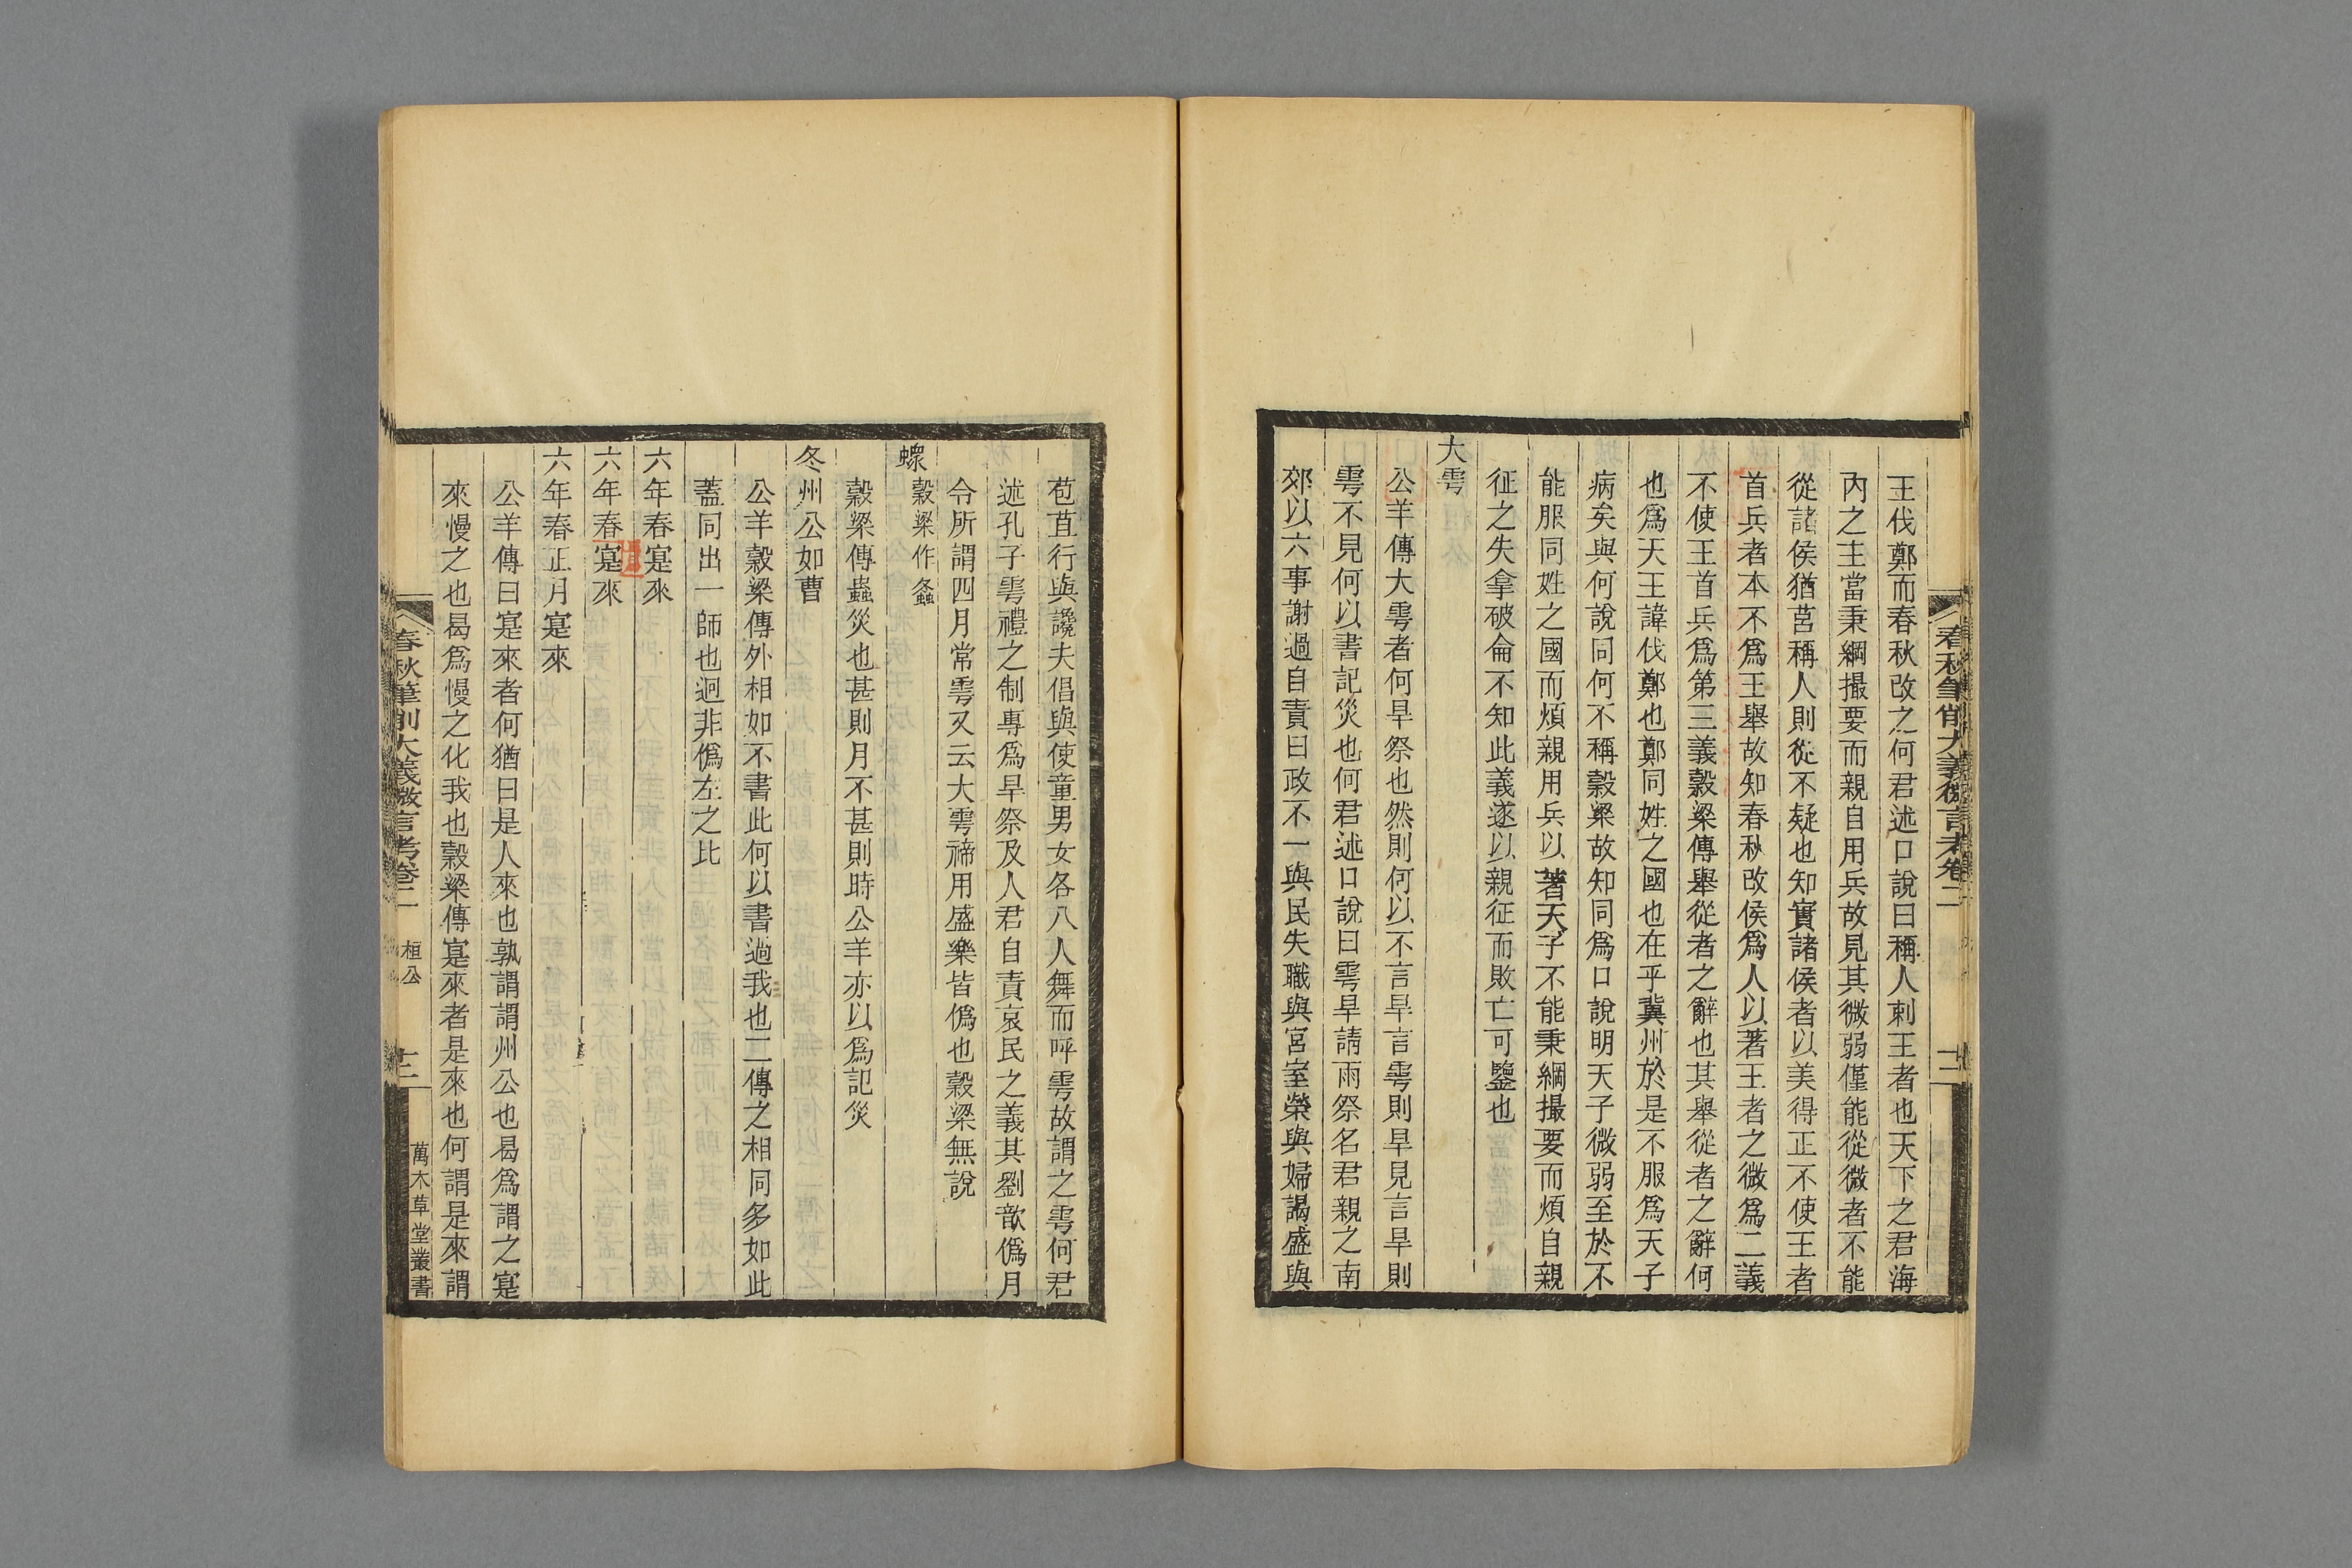 王伐鄭而春秋改之何君述口說曰稱人刺王者也天下之君海
內之主當秉綱撮要而親自用兵故見其微弱僅能從微者不能
從諸侯猶莒稱人則從不疑也知實諸侯者以美得正不使王者
首兵者本不爲王舉故知春秋改侯爲人以著王者之微爲二義
不使王首兵爲第三義穀梁傳舉從者之辭也其舉從者之辭何
也爲天王諱伐鄭也鄭同姓之國也在乎冀州於是不服爲天子
病矣與何說同何不稱穀梁故知同爲口說明天子微弱至於不
能服同姓之國而煩親用兵以著天子不能秉綱撮要而煩自親
征之失拿破侖不知此義遂以親征而敗亡可鑒也
大雩
公羊傳大雩者何旱祭也然則何以不言旱言雩則旱見言旱則
雩不見何以書記災也何君述口說曰雩旱請雨祭名君親之南
郊以六事謝過自責曰政不一與民失職與宮室榮與婦謁盛與
春秋筆削大義微言考卷二
苞苴行與讒夫倡與使童男女各八人舞而呼雩故謂之雩何君
述孔子雩禮之制專爲旱祭及人君自責哀民之義其劉歆僞月
令所謂四月常雩又云大雩禘用盛樂皆僞也穀梁無說
螺 穀梁作螽
穀梁傳蟲災也甚則月不甚則時公羊亦以爲記災
冬州公如曹
公羊穀梁傳外相如不書此何以書過我也二傳之相同多如此
蓋同出一師也迥非僞左之比
六年春寔來
六年春寔來
六年春正月寔來
公羊傳曰寔來者何猶曰是人來也孰謂謂州公也曷爲謂之寔
來慢之也曷爲慢之化我也穀梁傳寔來者是來也何謂是來謂
春秋筆削大義微言考卷二 桓公 十二 萬木草堂叢書